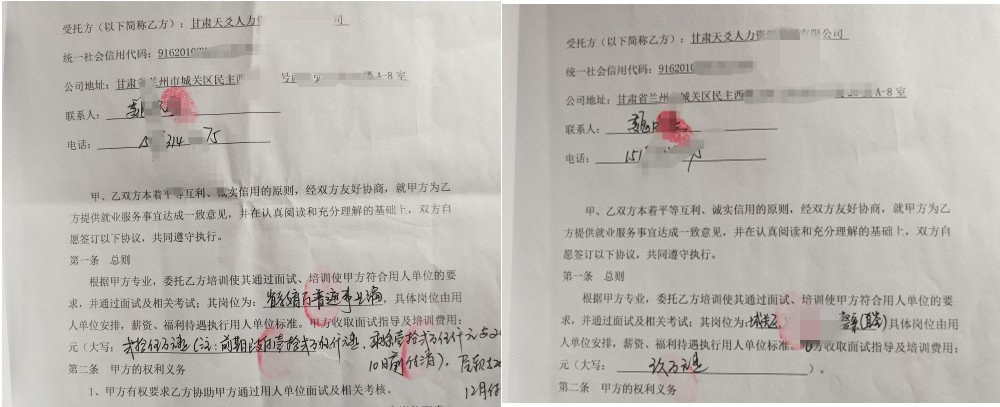 受托方（以下简称乙方）：甘肃天爻人力资 公司
统一社会信用代码：9162010
公司地址：甘肃省兰州市城关区民主西 号 楼A-8室
联系人：
电话： 314 75
甲、乙双方本着平等互利、诚实信用的原则，经双方友好协商，就甲方为乙
方提供就业服务事宜达成一致意见，并在认真阅读和充分理解的基础上，双方自
愿签订以下协议，共同遵守执行。
第一条 总则
根据甲方专业，委托乙方培训使其通过面试、培训使甲方符合用人单位的要
求，并通过面试及相关考试；其岗位为： 普通事业编，具体岗位由用
人单位安排，薪资、福利待遇执行用人单位标准。甲方收取面试指导及培训费用：
元（大写：贰拾伍万元（注：前期 壹拾贰万伍仟元， 壹拾贰万伍仟元
10日前付清）。
12月
第二条 甲方的权利义务
1、甲方有权要求乙方协助甲方通过用人单位面试及相关考核。
受托方（以下简称乙方）：甘肃天爻人力资 有限公司
统一社会信用代码：9162010
公司地址：甘肃省兰州 城关区民主西 A-8室
联系人：
电话：151
甲、乙双方本着平等互利、诚实信用的原则，经双方友好协商，就甲方为乙
方提供就业服务事宜达成一致意见，并在认真阅读和充分理解的基础上，双方自
愿签订以下协议，共同遵守执行。
第一条 总则
根据甲方专业，委托乙方培训使其通过面试、培训使甲方符合用人单位的要
求，并通过面试及相关考试；其岗位为：城关区 具体岗位由用
人单位安排，薪资、福利待遇执行用人单位标准。 方收取面试指导及培训费用：
元（大写： 玖万元 ）。
第二条 甲方的权利义务